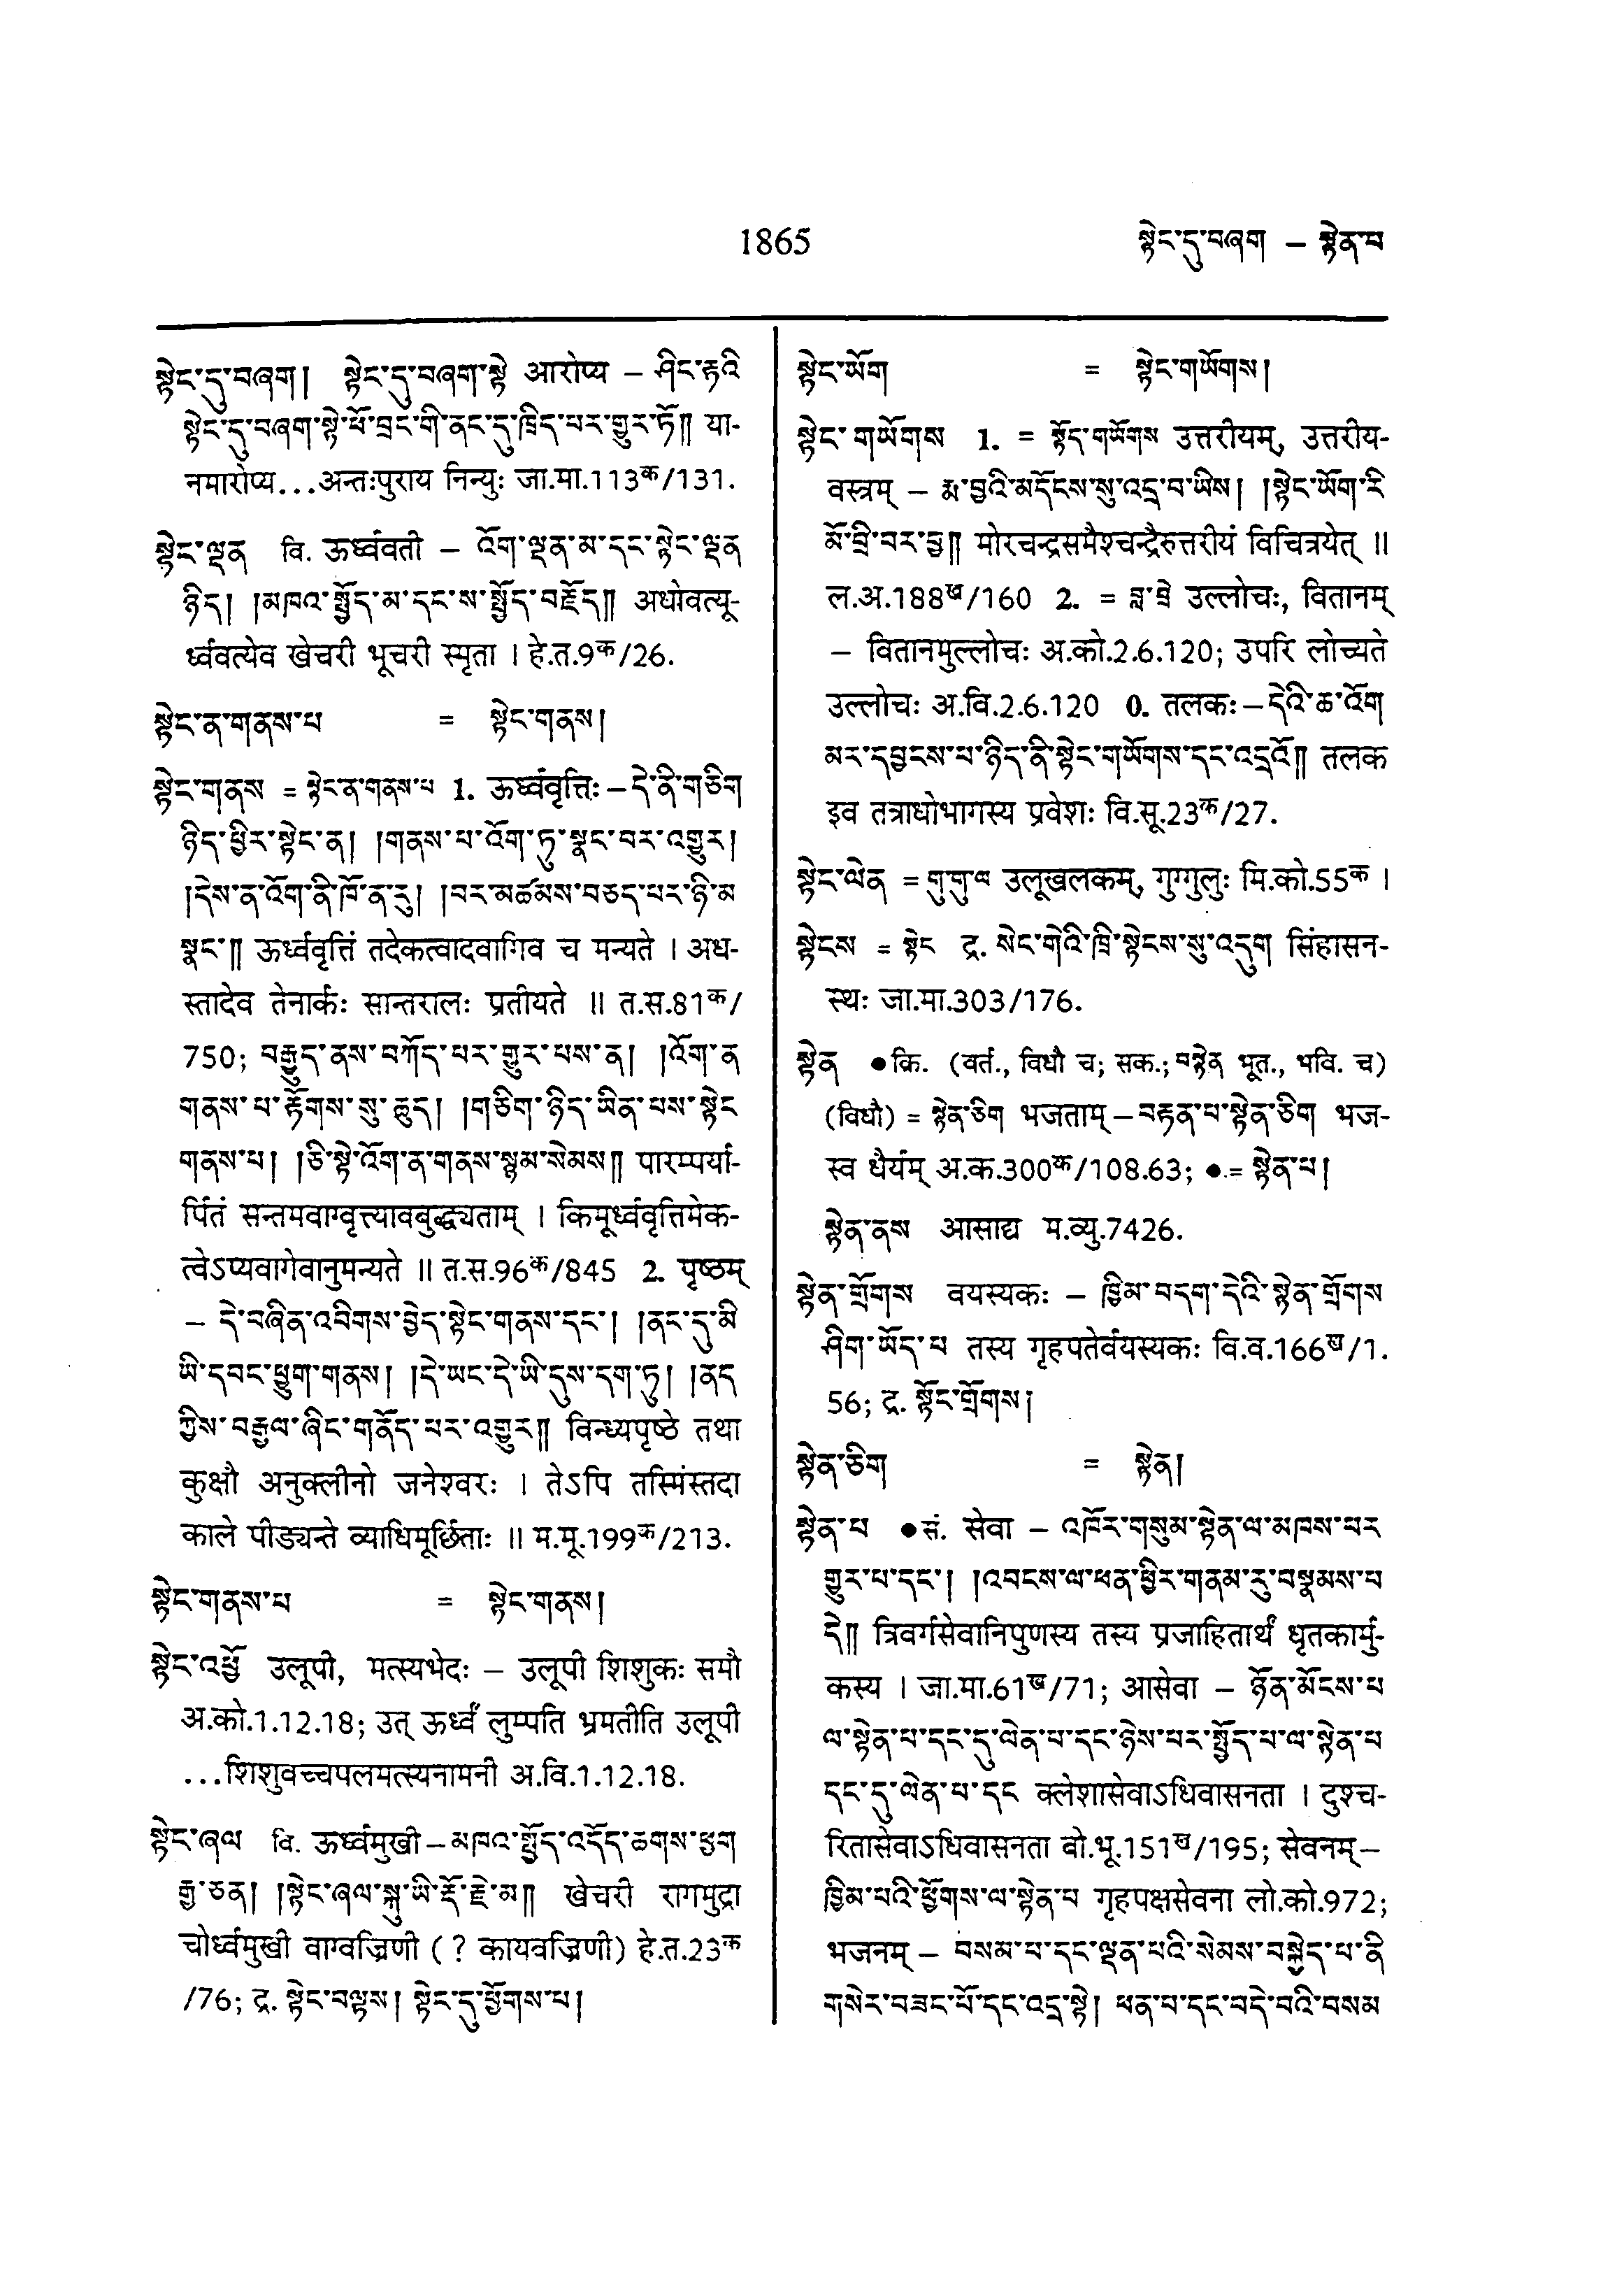 1865
སྟེང་དུ་བཞག – སྟེན་པ
སྟེང་དུ་བཞག། སྟེང་དུ་བཞག་སྟེ आरोप्य – ཤིང་རྟའི
སྟེང་དུ་བཞག་སྟེ་ཕོ་བྲང་གི་ནང་དུ་ཁྲིད་པར་གྱུར་ཏོ༎ या-
नमारोप्य...अन्तःपुराय निन्युः जा.मा.113क/131.
སྟེང་ལྡན वि. ऊर्ध्ववती – འོག་ལྡན་མ་དང་སྟེང་ལྡན
ཉིད། །མཁའ་སྤྱོད་མ་དང་ས་སྤྱོད་བརྗོད༎ अधोवत्यू-
र्ध्ववत्येव खेचरी भूचरी स्मृता । हे.त.9क/26.
སྟེང་ན་གནས་པ = སྟེང་གནས།
སྟེང་གནས = སྟེང་ན་གནས་པ 1. ऊर्ध्ववृत्तिः – དེ་ནི་གཅིག
ཉིད་ཕྱིར་སྟེང་ན། །གནས་པ་འོག་ཏུ་སྣང་བར་འགྱུར།
།དེས་ན་འོག་ནི་ཁོ་ན་རུ། །བར་མཚམས་བཅད་པར་ཉི་མ
སྣང་༎ ऊर्ध्ववृत्तिं तदेकत्वादवागिव च मन्यते । अध-
स्तादेव तेनार्कः सान्तरालः प्रतीयते ॥ त.स.81क/
750; བརྒྱུད་ནས་བཀོད་པར་གྱུར་པས་ན། །འོག་ན
གནས་པ་རྟོགས་སུ་ཆུད། །གཅིག་ཉིད་ཡིན་པས་སྟེང
གནས་པ། །ཅི་སྟེ་འོག་ན་གནས་སྙམ་སེམས༎ पारम्पर्या-
र्पितं सन्तमवाग्वृत्त्यावबुद्ध्यताम् । किमूर्ध्ववृत्तिमेक-
त्वेऽप्यवागेवानुमन्यते ॥ त.स.96क/845 2. पृष्ठम्
– དེ་བཞིན་འབིགས་བྱེད་སྟེང་གནས་དང་། །ནང་དུ་མི
ཡི་དབང་ཕྱུག་གནས། །དེ་ཡང་དེ་ཡི་དུས་དག་ཏུ། །ནད
ཀྱིས་བརྒྱལ་ཞིང་གནོད་པར་འགྱུར༎ विन्ध्यपृष्ठे तथा
कुक्षौ अनुक्लीनो जनेश्वरः । तेऽपि तस्मिंस्तदा
काले पीड्यन्ते व्याधिमूर्छिताः ॥ म.मू.199क/213.
སྟེང་གནས་པ = སྟེང་གནས།
སྟེང་འཕྱོ उलूपी, मत्स्यभेदः – उलूपी शिशुकः समौ
अ.को.1.12.18; उत् ऊर्ध्वं लुम्पति भ्रमतीति उलूपी
...शिशुवच्चपलमत्स्यनामनी अ.वि.1.12.18.
སྟེང་ཞལ वि. ऊर्ध्वमुखी – མཁའ་སྤྱོད་འདོད་ཆགས་ཕྱག
རྒྱ་ཅན། །སྟེང་ཞལ་སྐུ་ཡི་རྡོ་རྗེ་མ༎ खेचरी रागमुद्रा
चोर्ध्वमुखी वाग्वज्रिणी (? कायवज्रिणी) हे.त.23क
/76; द्र. སྟེང་བལྟས། སྟེང་དུ་ཕྱོགས་པ།
སྟེང་ཡོག = སྟེང་གཡོགས།
སྟེང་གཡོགས 1. = སྟོད་གཡོགས उत्तरीयम्, उत्तरीय-
वस्त्रम् – རྨ་བྱའི་མདོངས་སུ་འདྲ་བ་ཡིས། །སྟེང་ཡོག་རི
མོ་བྲི་བར་བྱ༎ मोरचन्द्रसमैश्चन्द्रैरुत्तरीयं विचित्रयेत् ॥
ल.अ.188ख/160 2. = བླ་བྲེ उल्लोचः, वितानम्
– वितानमुल्लोचः अ.को.2.6.120; उपरि लोच्यते
उल्लोचः अ.वि.2.6.120 0. तलकः – དེའི་ཆ་འོག
མར་དབྱངས་པ་ཉིད་ནི་སྟེང་གཡོགས་དང་འདྲའོ༎ तलक
इव तत्राधोभागस्य प्रवेशः वि.सू.23क/27.
སྟེང་ལེན = གུ་གུ་ལ उलूखलकम्, गुग्गुलुः मि.को.55क ।
སྟེངས = སྟེང द्र. སེང་གེའི་ཁྲི་སྟེངས་སུ་འདུག सिंहासन-
स्थः जा.मा.303/176.
སྟེན ● क्रि. (वर्त., विधौ च; सक.; བསྟེན भूत., भवि. च)
(विधौ) = སྟེན་ཅིག भजताम् – བརྟན་པ་སྟེན་ཅིག भज-
स्व धैर्यम् अ.क.300क/108.63; ● = སྟེན་པ།
སྟེན་ནས आसाद्य म.व्यु.7426.
སྟེན་གྲོགས वयस्यकः – ཁྱིམ་བདག་དེའི་སྟེན་གྲོགས
ཤིག་ཡོད་པ तस्य गृहपतेर्वयस्यकः वि.व.166ख/1.
56; द्र. སྟོང་གྲོགས།
སྟེན་ཅིག = སྟེན།
སྟེན་པ ● सं. सेवा – འཁོར་གསུམ་སྟེན་ལ་མཁས་པར
གྱུར་པ་དང་། །འབངས་ལ་ཕན་ཕྱིར་གནམ་རུ་བསྣམས་པ
དེ༎ त्रिवर्गसेवानिपुणस्य तस्य प्रजाहितार्थं धृतकार्मु-
कस्य । जा.मा.61ख/71; आसेवा – ཉོན་མོངས་པ
ལ་སྟེན་པ་དང་དུ་ལེན་པ་དང་ཉེས་པར་སྤྱོད་པ་ལ་སྟེན་པ
དང་དུ་ལེན་པ་དང क्लेशासेवाऽधिवासनता । दुश्च-
रितासेवाऽधिवासनता बो.भू.151ख/195; सेवनम् –
ཁྱིམ་པའི་ཕྱོགས་ལ་སྟེན་པ गृहपक्षसेवना लो.को.972;
भजनम् – བསམ་པ་དང་ལྡན་པའི་སེམས་བསྐྱེད་པ་ནི
གསེར་བཟང་པོ་དང་འདྲ་སྟེ། ཕན་པ་དང་བདེ་བའི་བསམ